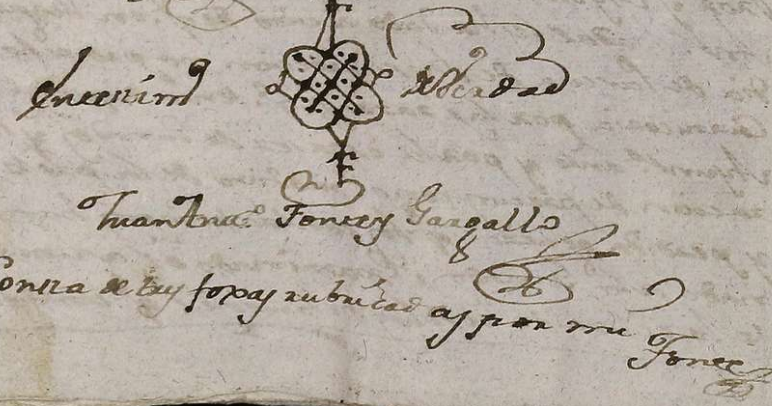 En testim.o de Verdad
Juan Anto. Foncey Gargallo
Consta de tres foxas rubricadas por mi
Fonce